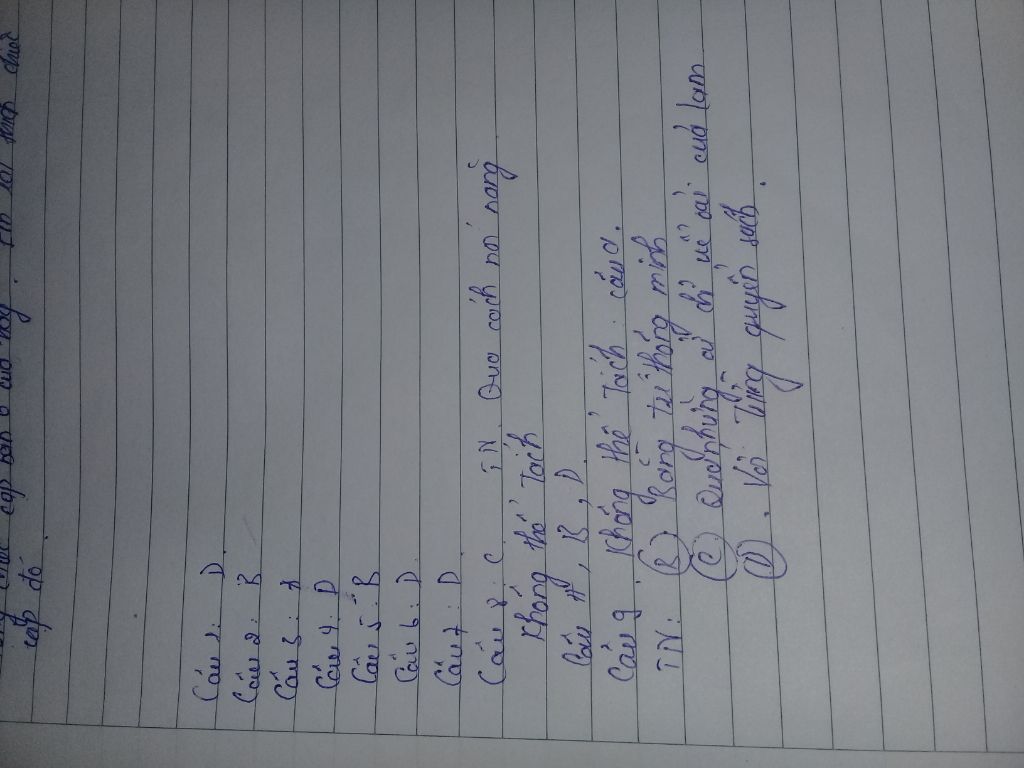 cặp sách
cặp đó.
Câu 1: D
Câu 2: B
Câu 3: A
Câu 4: D
Câu 5: B
Câu 6: D
Câu 7: D
Câu 8: C. TN. Qua cách nói năng
Không thể Tách
Câu A, B, D
Câu 9. Không thể Tách: câu a.
TN: B Bằng trí thông minh
C Qua những chỉ của Lam
D. Với Từng quyển sách.